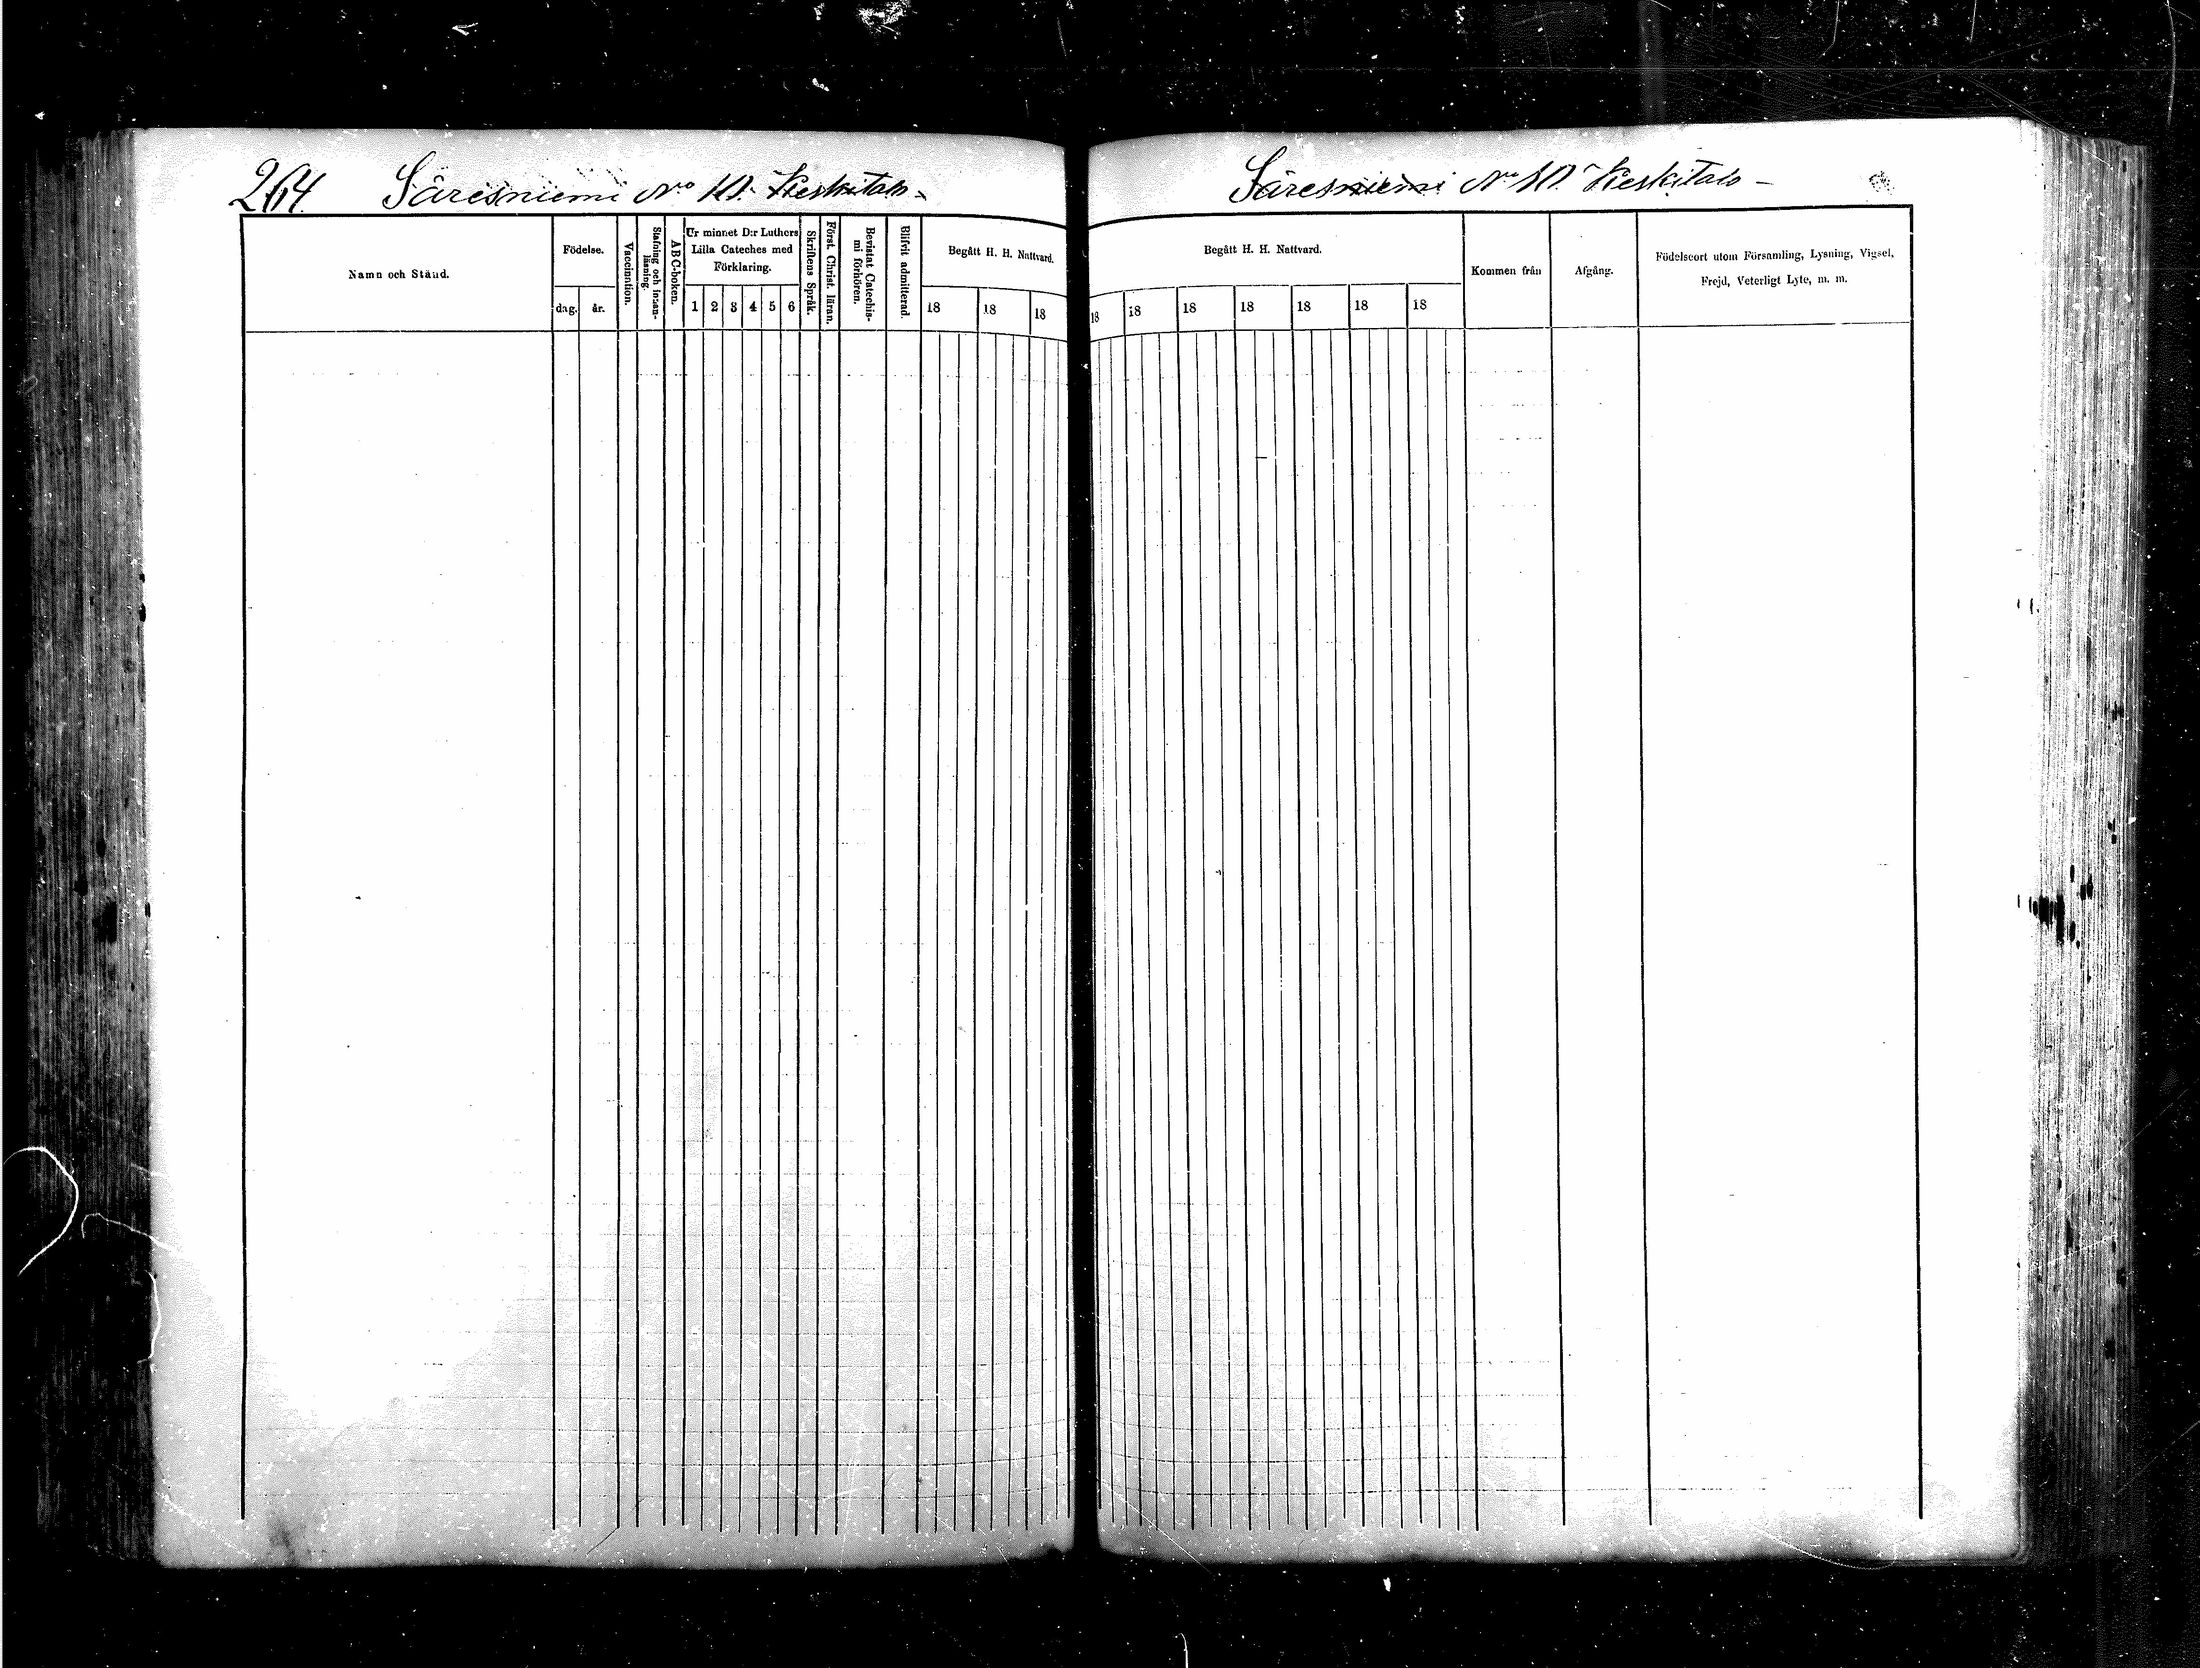 264. Säresniemi No 10. Keskitalo -
Namn och Stånd.
Födelse.
dag.
år.
Vaccination.
Stafning och innan-
läsning.
ABC-boken.
Ur minnet D:r Luthers
Lilla Cateches med
Förklaring.
1 2 3 4 5 6
Skriftens Språk.
Först. Christ. läran.
Bevistat Catechis-
mi förhören.
Blifvit admitterad.
Begått H. H. Nattvard.
18 18 18
Säresniemi No 10. Keskitalo -
Begått H. H. Nattvard.
18 18 18 18 18 18 18
Kommen från
Afgång.
Födelseort utom Församling, Lysning, Vigsel,
Frejd, Veterligt Lyte, m. m.